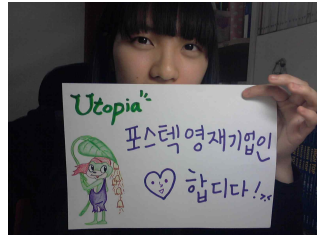 Utopia
포스텍영재기업인
합디다!